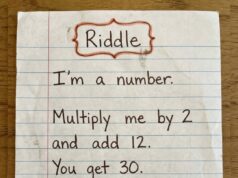 Riddle
I'm a number.
Multiply me by 2
and add 12.
You get 30.